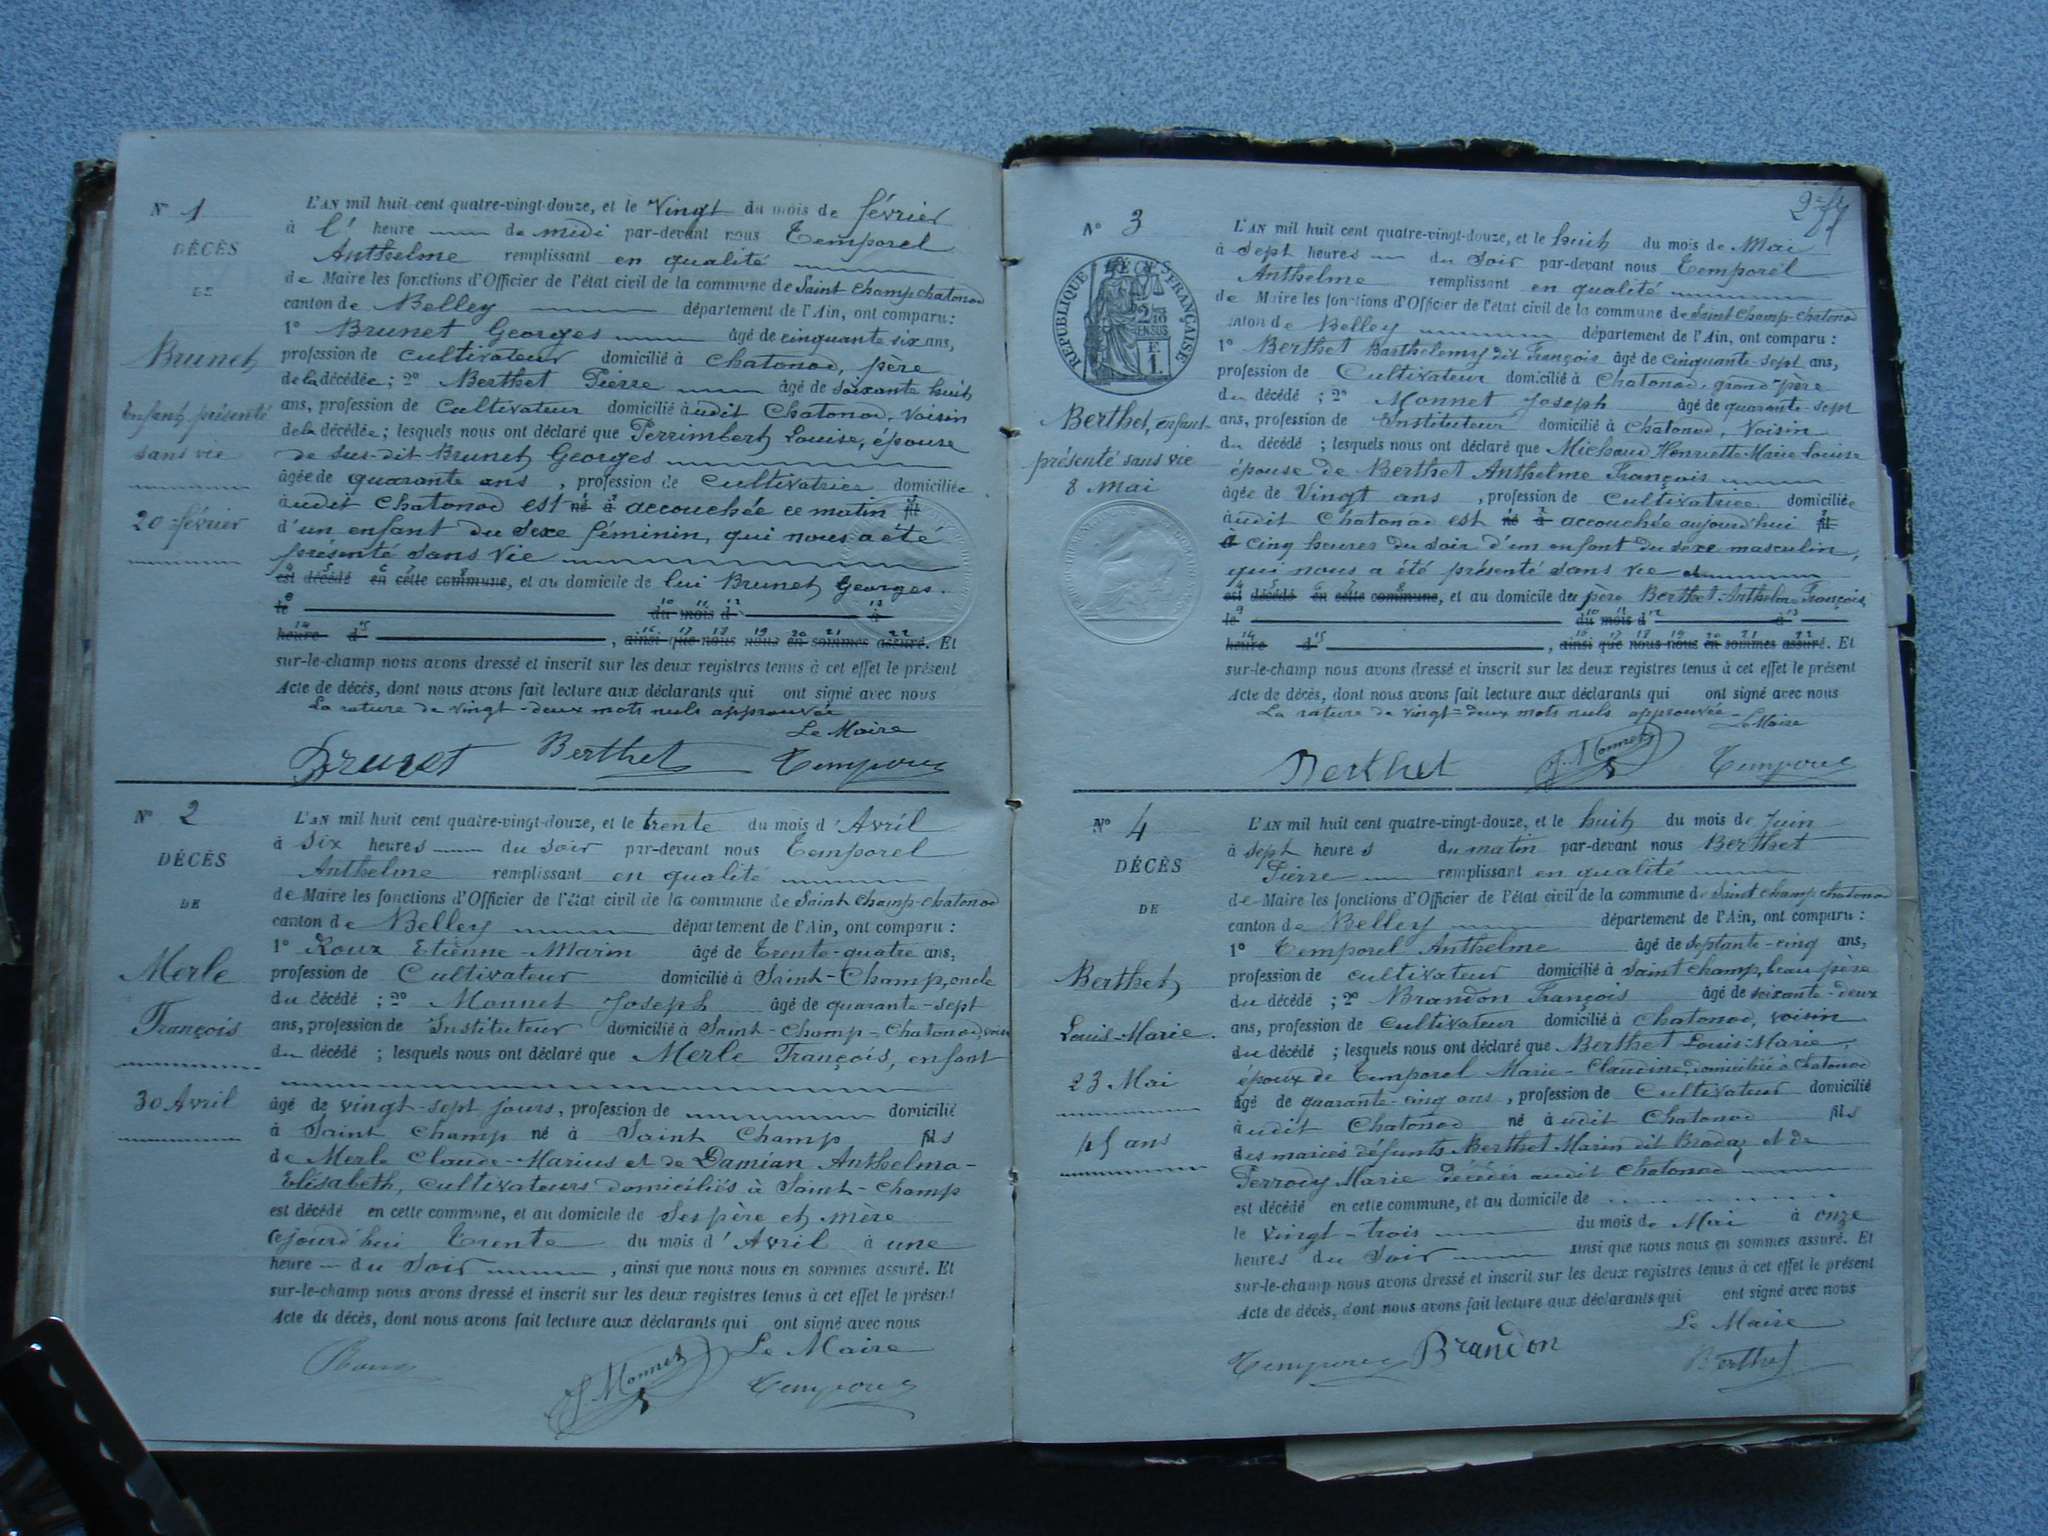 N° 1
DÉCÈS
DE
Brunet
Enfant présenté
sans vie
20 février
L'AN mil huit cent quatre-vingt-douze, et le Vingt du mois de février
à l' heure de midi par-devant nous Temporel
Anthelme remplissant en qualité
de Maire les fonctions d'Officier de l'état civil de la commune de Saint Champ chatonod
canton de Belley département de l'Ain, ont comparu :
1° Brunet Georges âgé de cinquante six ans,
profession de cultivateur domicilié à Chatonod, père
de la décédée ; 2° Berthet Pierre âgé de soixante huit
ans, profession de Cultivateur domicilié à udit Chatonod, voisin
de la décédée ; lesquels nous ont déclaré que Perrimbert Louise, épouse
de sus-dit Brunet Georges
âgée de quarante ans , profession de cultivatrice domiciliée
à udit Chatonod est né à accouchée ce matin fil
d'un enfant du sexe féminin, qui nous a été
présenté sans vie
est décédé en cette commune, et au domicile de lui Brunet Georges.
le du mois d à
heure d , ainsi que nous nous en sommes assuré. Et
sur-le-champ nous avons dressé et inscrit sur les deux registres tenus à cet effet le présent
Acte de décès, dont nous avons fait lecture aux déclarants qui ont signé avec nous
La rature de vingt-deux mots nuls approuvée
Le Maire
Brunet Berthet Temporel
N° 2
DÉCÈS
DE
Merle
François
30 Avril
L'AN mil huit cent quatre-vingt-douze, et le trente du mois d'Avril
à six heures du soir par-devant nous Temporel
Anthelme remplissant en qualité
de Maire les fonctions d'Officier de l'état civil de la commune de Saint Champ-chatonod
canton de Belley département de l'Ain, ont comparu :
1° Roux Etienne-Marin âgé de trente-quatre ans,
profession de Cultivateur domicilié à Saint-Champ, oncle
du décédé ; 2° Monnet Joseph âgé de quarante-sept
ans, profession de Instituteur domicilié à Saint-Champ-Chatonod, voisin
du décédé ; lesquels nous ont déclaré que Merle François, enfant
âgé de vingt-sept jours, profession de domicilié
à Saint Champ né à Saint Champ fils
de Merle Claude-Marius et de Damian Anthelma-
Elisabeth, cultivateurs domiciliés à Saint-Champ
est décédé en cette commune, et au domicile de Ses père et mère
cejourd'hui Trente du mois d'Avril à une
heure du soir , ainsi que nous nous en sommes assuré. Et
sur-le-champ nous avons dressé et inscrit sur les deux registres tenus à cet effet le présent
Acte de décès, dont nous avons fait lecture aux déclarants qui ont signé avec nous
Le Maire
Roux J. Monnet Temporel
N° 3
DÉCÈS
RÉPUBLIQUE FRANÇAISE
2/10 EN SUS
E
1.
Berthet, enfant
présenté sans vie
8 Mai
L'AN mil huit cent quatre-vingt-douze, et le huit du mois de Mai
à sept heures du soir par-devant nous Temporel
Anthelme remplissant en qualité
de Maire les fonctions d'Officier de l'état civil de la commune de Saint Champ-chatonod
canton de Belley département de l'Ain, ont comparu :
1° Berthet Barthelemy dit François âgé de cinquante-sept ans,
profession de Cultivateur domicilié à Chatonod, grand-père
du décédé ; 2° Monnet Joseph âgé de quarante-sept
ans, profession de Instituteur domicilié à Chatonod, Voisin
du décédé ; lesquels nous ont déclaré que Michaud Henriette Marie Louise
épouse de Berthet Anthelme François
âgée de Vingt ans , profession de cultivatrice domiciliée
à udit Chatonod est né à accouchée aujourd'hui fil
à cinq heures du soir d'un enfant du sexe masculin,
qui nous a été présenté sans vie
est décédé en cette commune, et au domicile du père Berthet Anthelme François
le du mois d à
heure d , ainsi que nous nous en sommes assuré. Et
sur-le-champ nous avons dressé et inscrit sur les deux registres tenus à cet effet le présent
Acte de décès, dont nous avons fait lecture aux déclarants qui ont signé avec nous
La rature de vingt-deux mots nuls approuvée Le Maire
Berthet J. Monnet Temporel
N° 4
DÉCÈS
DE
Berthet
Louis-Marie.
23 Mai
45 ans
L'AN mil huit cent quatre-vingt-douze, et le huit du mois de Juin
à sept heures du matin par-devant nous Berthet
Pierre remplissant en qualité
de Maire les fonctions d'Officier de l'état civil de la commune de Saint Champ chatonod
canton de Belley département de l'Ain, ont comparu :
1° Temporel Anthelme âgé de septante-cinq ans,
profession de cultivateur domicilié à Saint Champ, beau père
du décédé ; 2° Brandon François âgé de soixante-deux
ans, profession de cultivateur domicilié à Chatonod, voisin
du décédé ; lesquels nous ont déclaré que Berthet Louis-Marie,
époux de Temporel Marie-Claudine, domiciliée à Chatonod
âgé de quarante-cinq ans, profession de Cultivateur domicilié
à udit Chatonod né à udit Chatonod fils
des mariés défunts Berthet Marin dit Brodaz et de
Perrody Marie décédés audit Chatonod
est décédé en cette commune, et au domicile de
le vingt-trois du mois de Mai à onze
heures du soir ainsi que nous nous en sommes assuré. Et
sur-le-champ nous avons dressé et inscrit sur les deux registres tenus à cet effet le présent
Acte de décès, dont nous avons fait lecture aux déclarants qui ont signé avec nous
Le Maire
Temporel Brandon Berthet